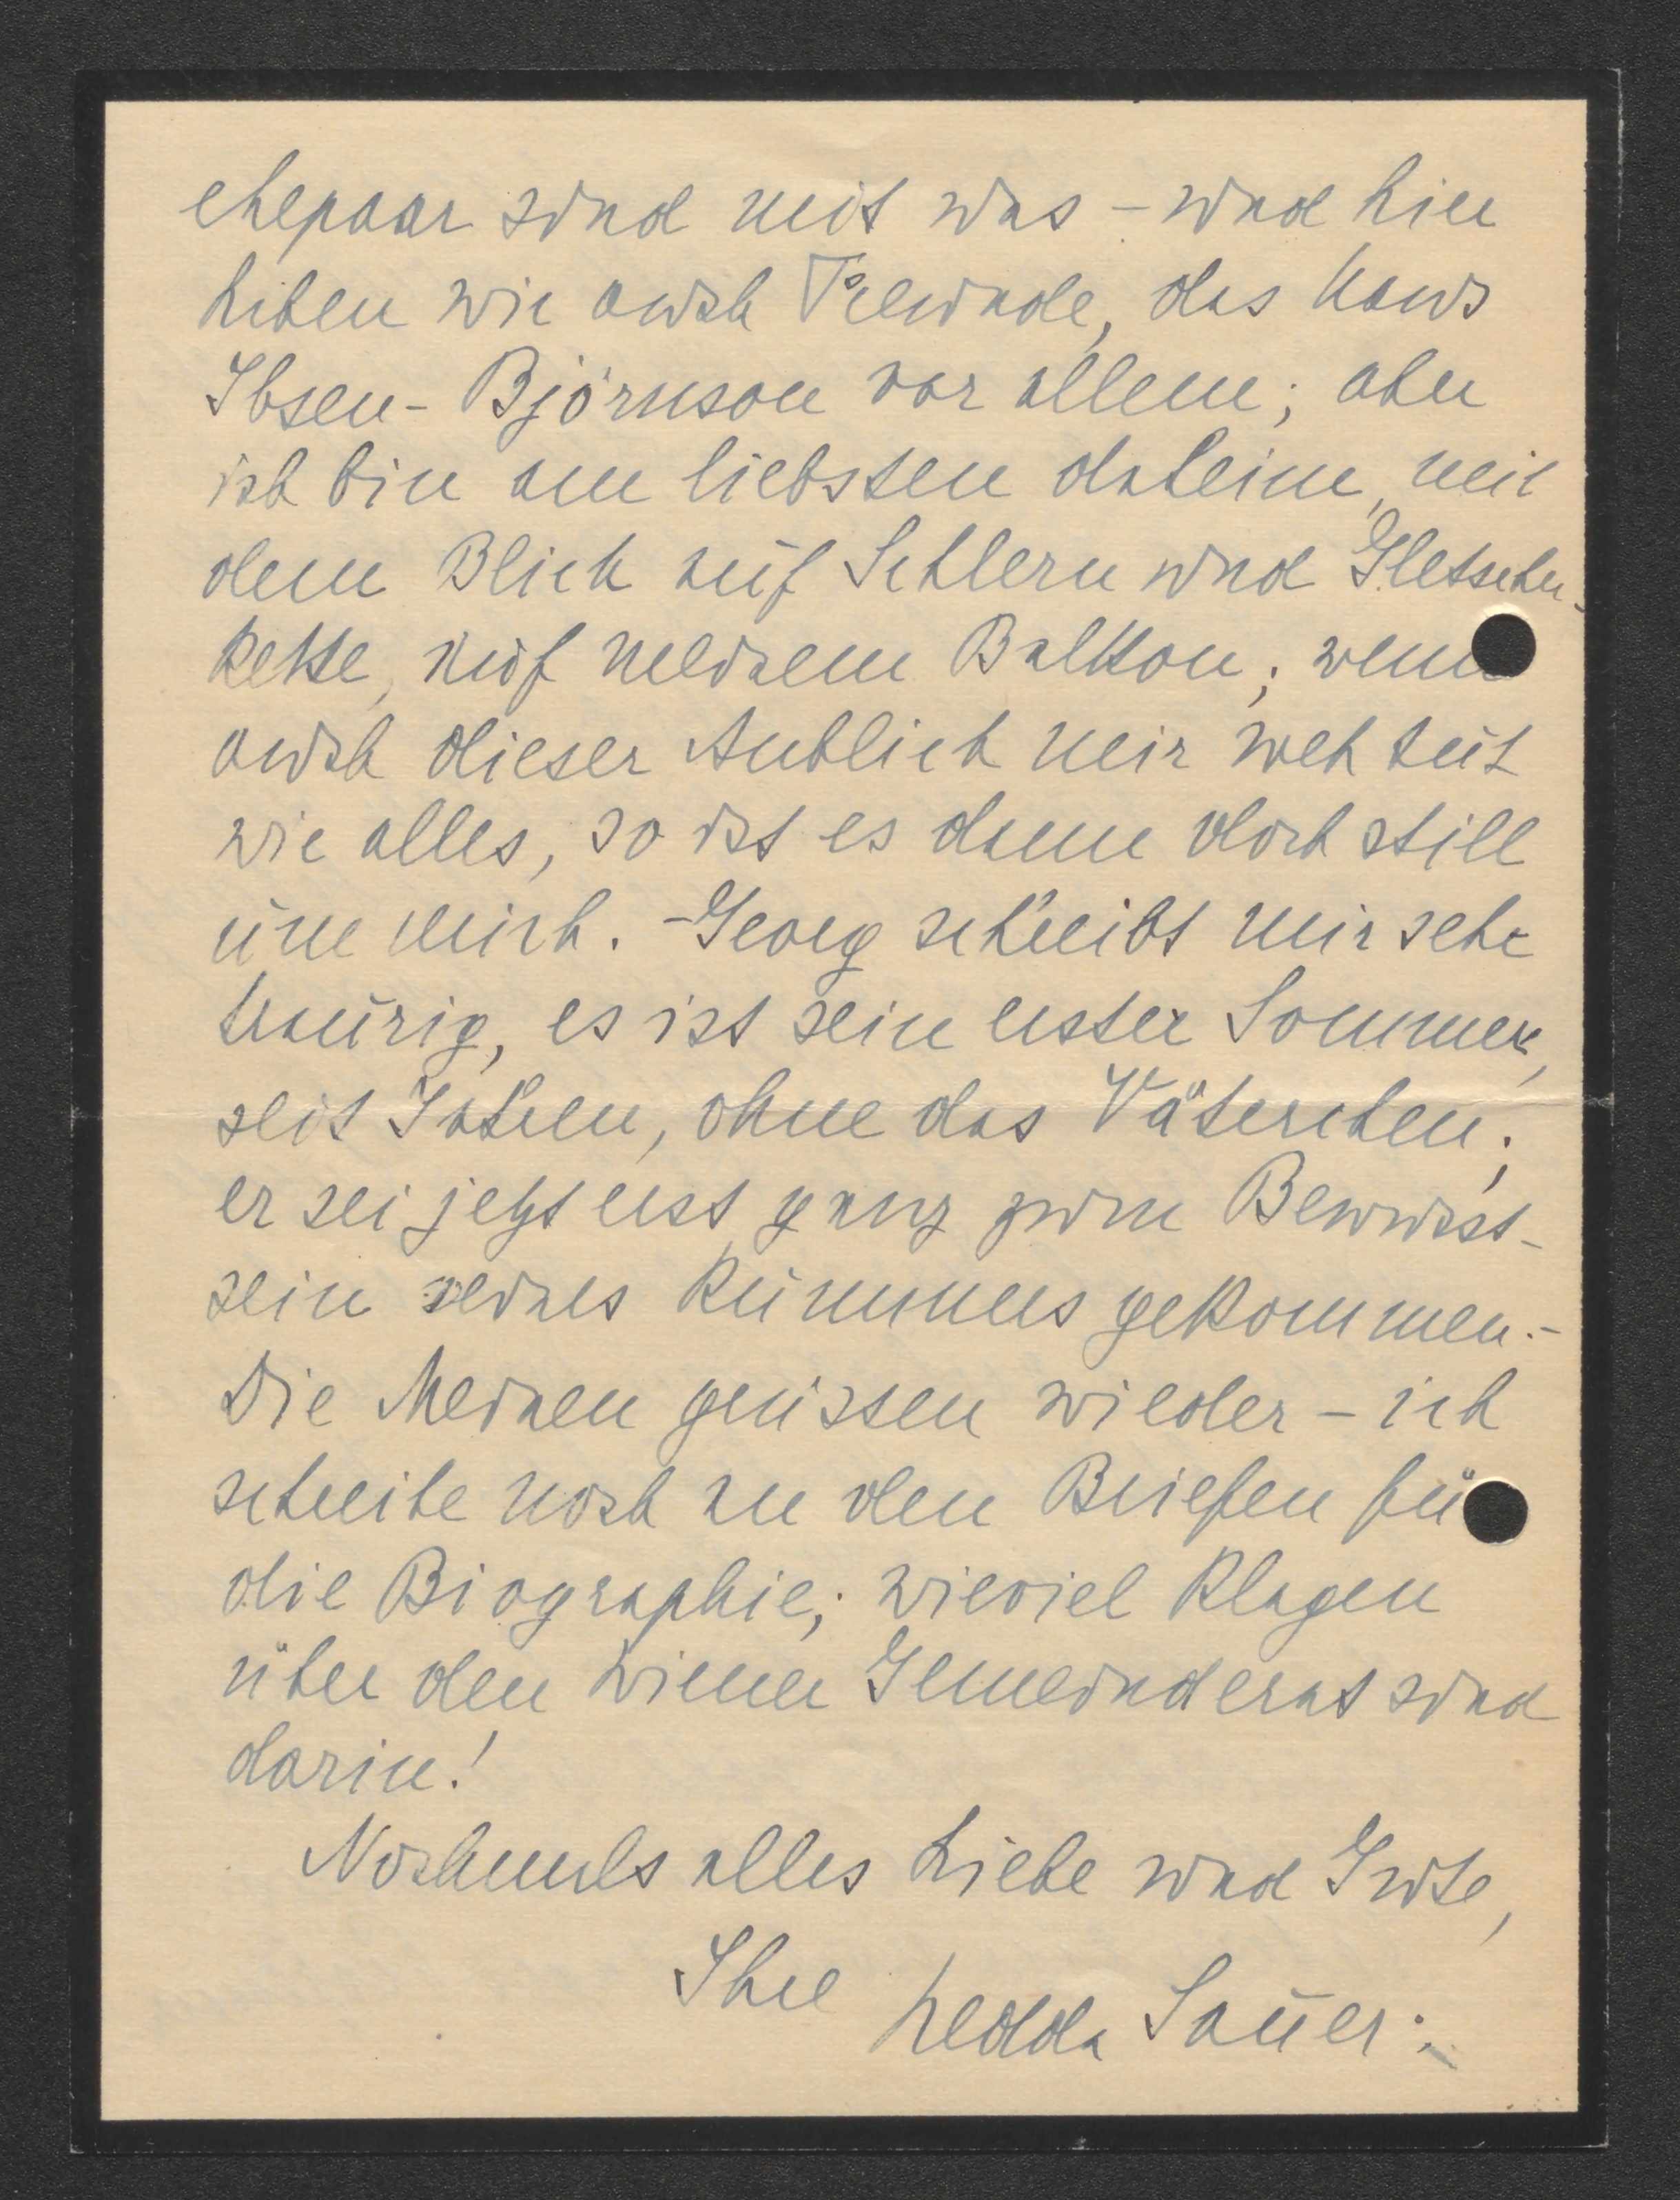 ehepaar sind mit uns – und hier
haben wir auch Freunde, das Haus
Ibsen-Björnson vor allem; aber
ich bin am liebsten daheim, mit
dem Blick auf Schlern und Gletscher-
kette, auf meinem Balkon; wenn
auch dieser Anblick mir weh tut
wie alles, so ist es dann doch still
um mich. – Georg schreibt mir sehr
traurig, es ist sein erster Sommer,
seit Jahren, ohne das Väterchen;
er sei jetzt erst ganz zum Bewusst-
sein seines Kummers gekommen. –
Die Meinen grüssen wieder – ich
schreibe noch an den Briefen für
die Biographie; wieviel Klagen
über den Wiener Gemeinderat sind
darin!
Nochmals alles Liebe und Gute,
Ihre Hedda Sauer.